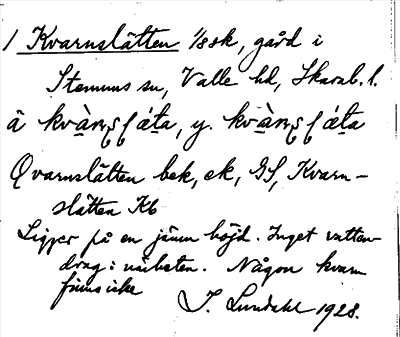 1 Kvarnslätten 1/8 sk, gård i
Stenums sn, Valle hd, Skarab. l.
å kvà̱nʂʃá̱ta, y. kvà̱nʂʃá̱ta
Qvarnslätten bek, ek, GS, Kvarn-
slätten Kb
Ligger på en jämn höjd. Inget vatten-
drag i närheten. Någon kvarn
finns icke
J. Lundahl 1928.